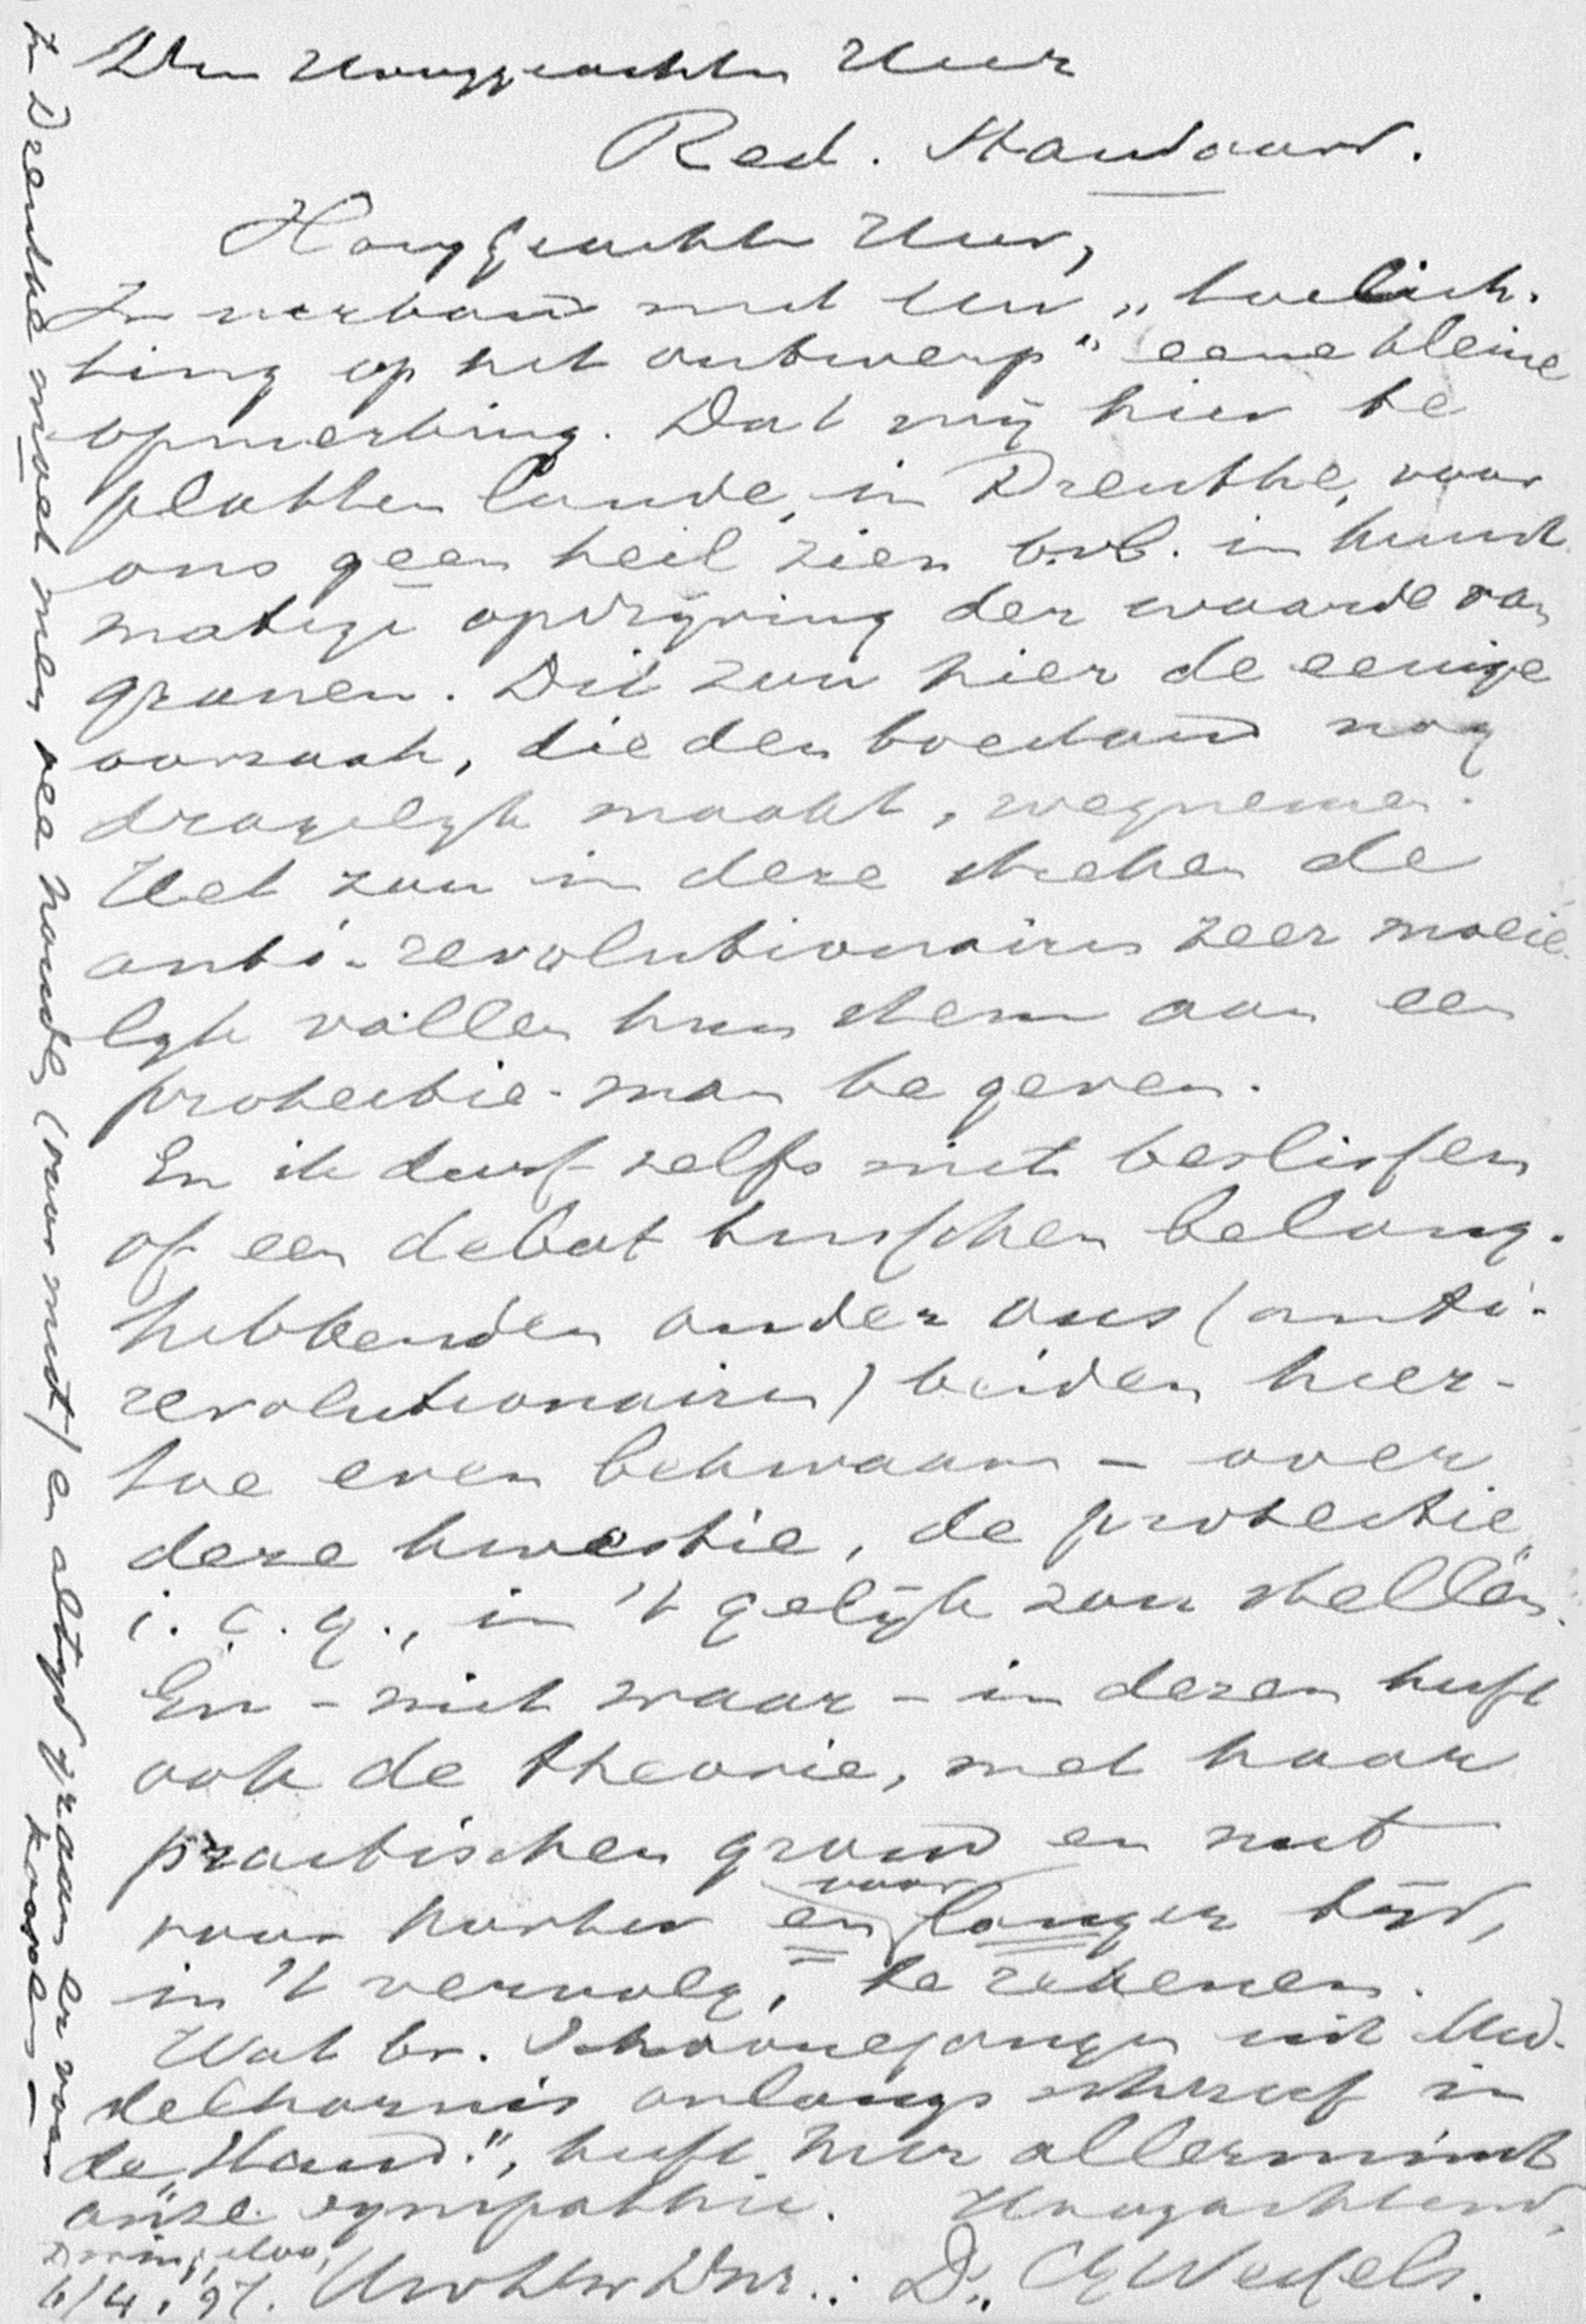 Den Hooggeachten Heer
Red. Standaard.
Hooggeachte Heer,
In verband met Uw „toelich-
ting op het ontwerp” eene kleine
opmerking. Dat wij hier te
platten lande, in Drenthe, voor
ons geen heil zien bvb. in kunst
matige opdrijving der waarde van
granen. Dit zou hier de eenige
oorzaak, die den toestand nog
dragelijk maakt, wegnemen.
Het zou in deze streken de
anti-revolutionairen zeer moeie-
lijk vallen hun stem aan een
protectie-man te geven.
En ik durf zelfs niet beslissen
of een debat tusschen belang-
hebbenden onder ons (anti-
revolutionairen) beiden hier-
toe even bekwaam – over
deze kwestie, de protectie
i. c. q., in 't gelijk zou stellen.
En – niet waar – in dezen heeft
ook de theorie, met haar
practischen grond en nut
voor korter en voor langer tijd,
in 't vervolg, te rekenen.
Wat br. Schoonejongen uit Mid-
delharnis onlangs schreef in
de „Stand.”, heeft hier allerminst
onze sympathie. Hoogachtend,
Dwingeloo,
6/4.'97. Uw Dnr.: Ds. Wessels.
In Drenthe moet men vee houden (voor mest) en altijd graan er voor
koopen –